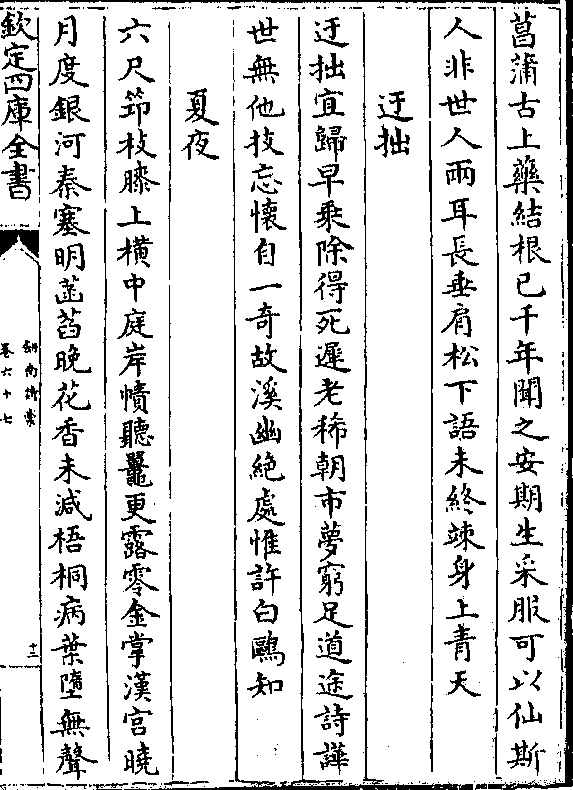 菖蒲古上藥結根已千年聞之安期生采服可以仙斯
人非世人兩耳長垂肩松下語未終竦身上青天
迂拙
迂拙宜歸早乘除得死遲老稀朝市夢窮足道途詩譁
世無他技忘懷自一奇故溪幽絶處惟許白鷗知
夏夜
六尺笻枝膝上橫中庭岸幘聽鼉更露零金掌漢宮曉
月度銀河秦塞明菡萏晚花香未減梧桐病葉墮無聲
欽定四庫全書
劍南詩藁
卷六十七
十三